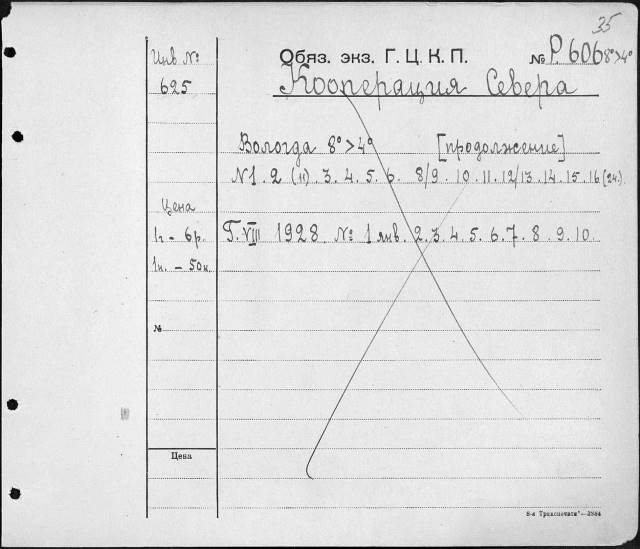 35
Инв №
625
Обяз. экз. Г. Ц. К. П. № Р. 606 8°>4°
Кооперация Севера
Вологда 8°>4° [продолжение]
N 1. 2 (11). 3. 4. 5. 6. 8/9. 10. 11. 12/13. 14. 15. 16 (24).
Цена
1г – 6р.
Г. VIII 1928 №: 1 янв. 2. 3. 4. 5. 6. 7. 8. 9. 10.
1н. – 50к.
№
Цена